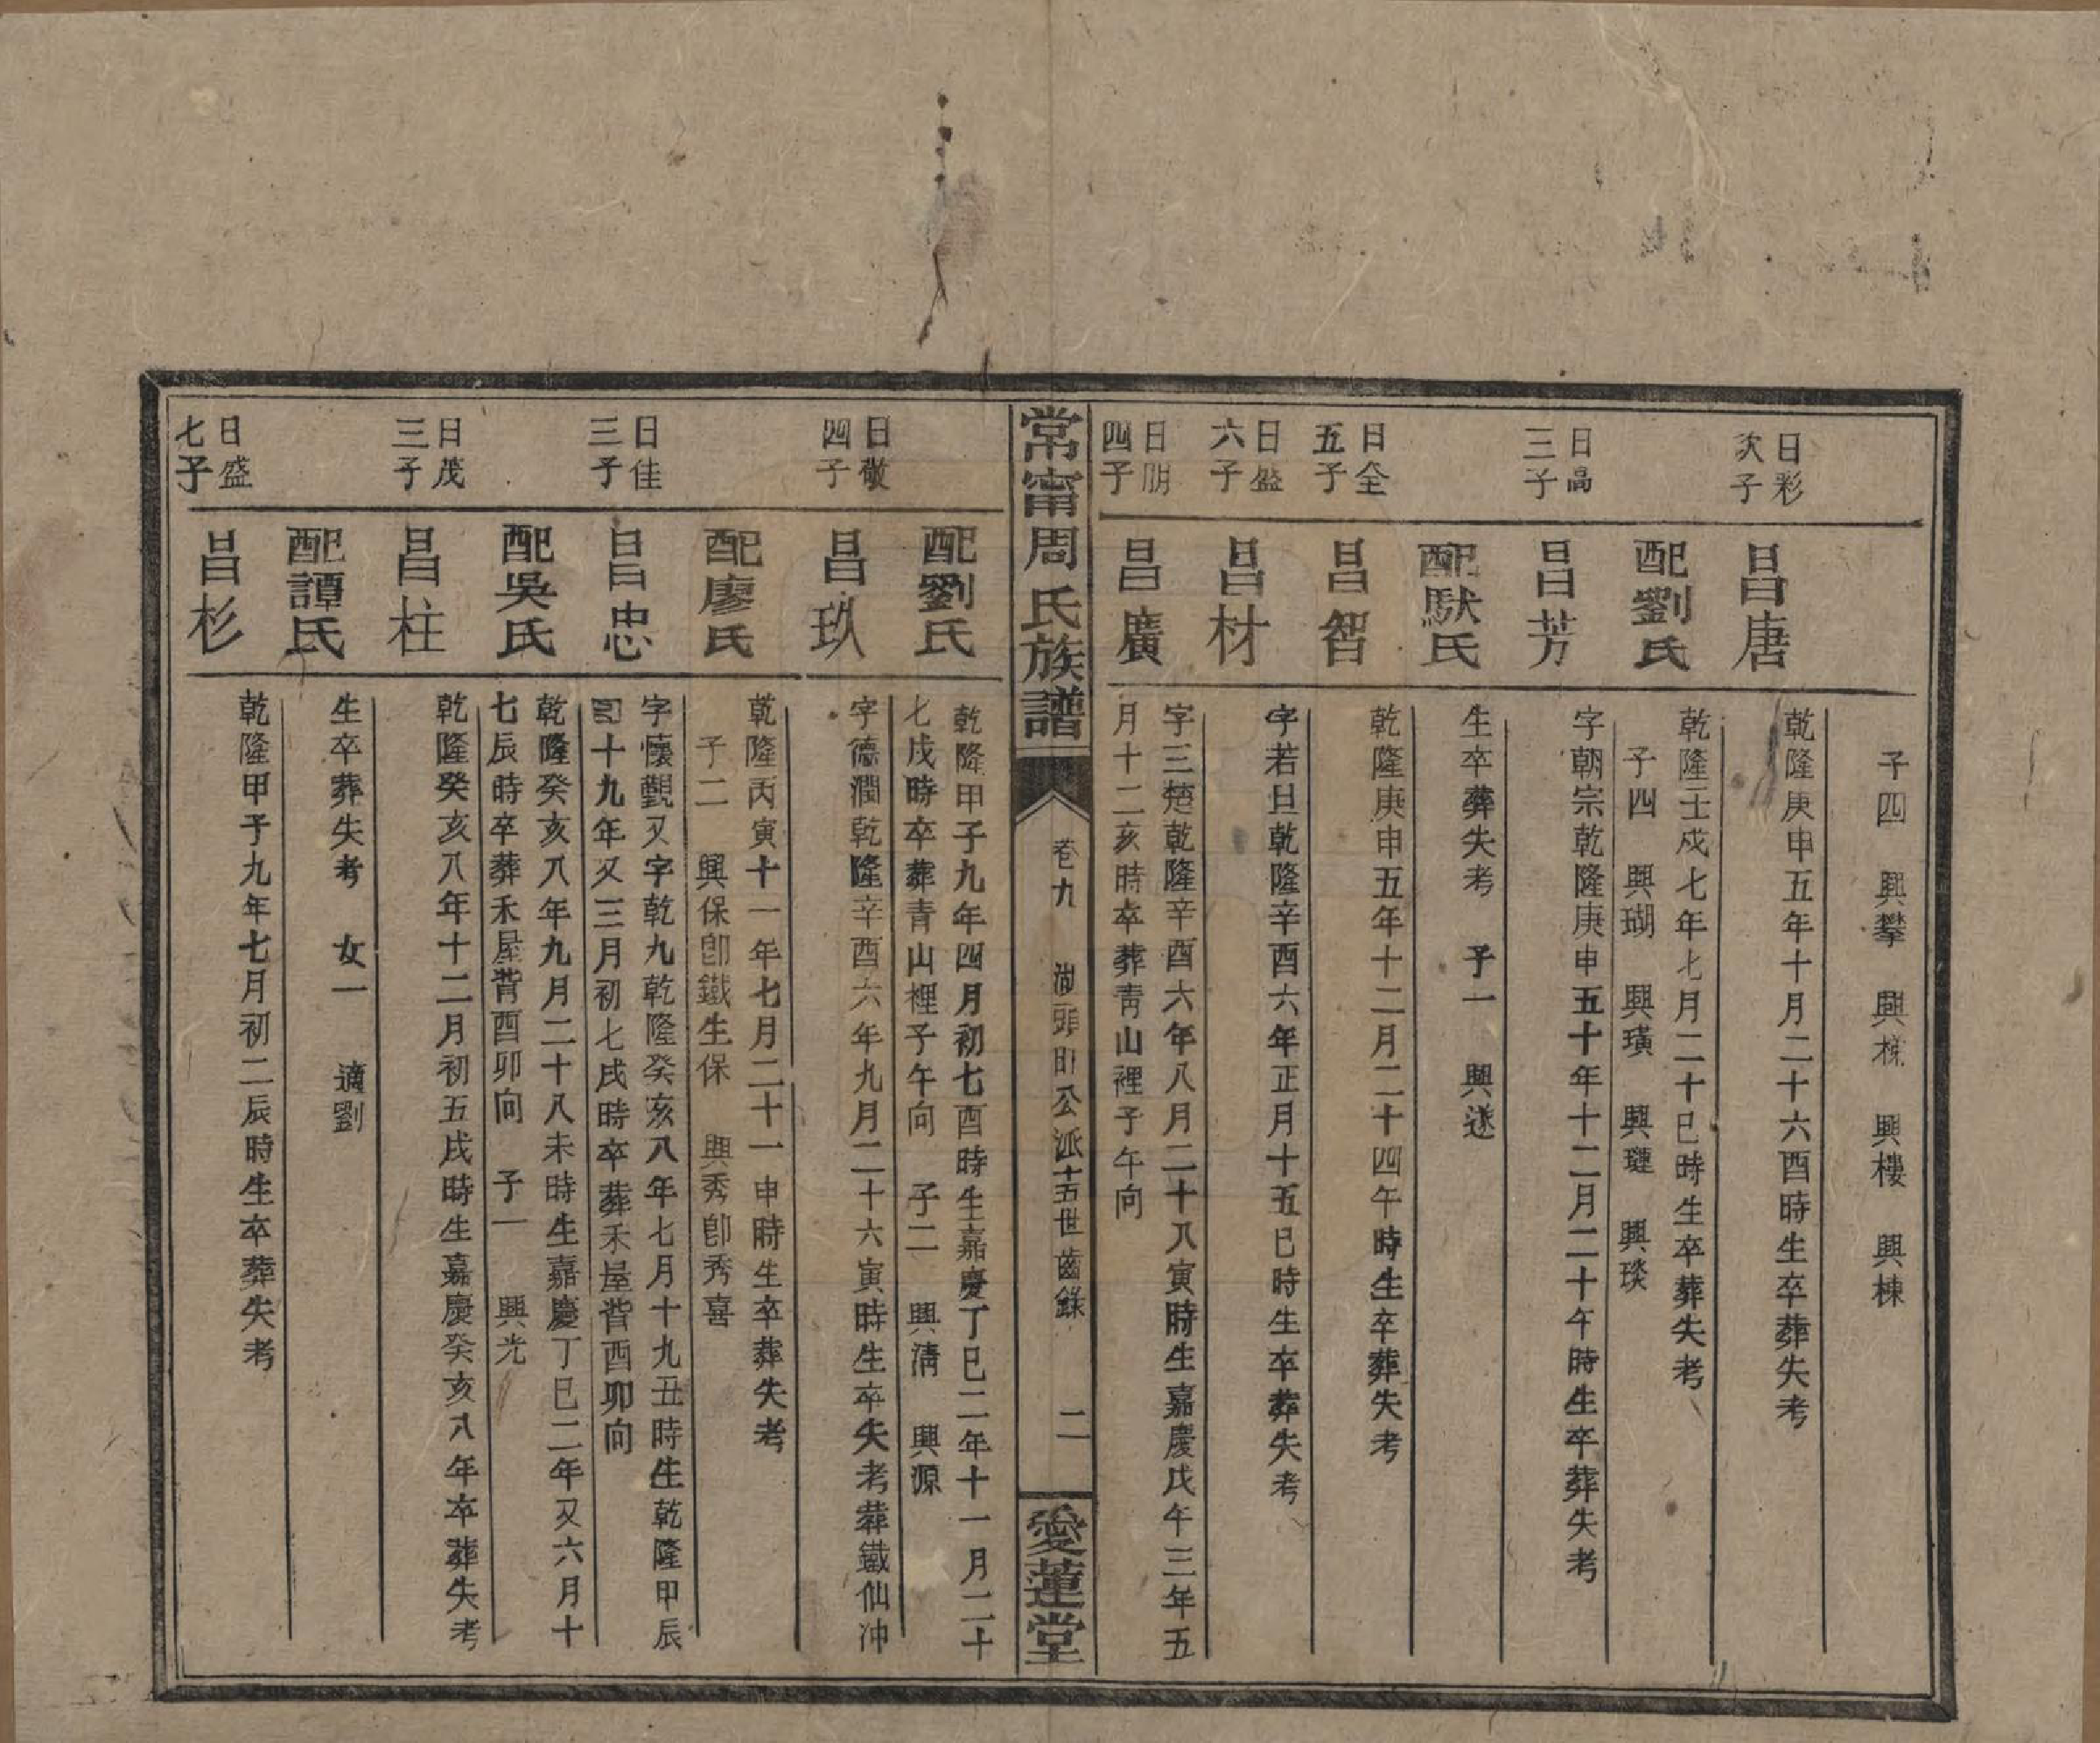 子四　興攀　興樑　興樓　興棟
日彩
次子
昌唐
乾隆庚申五年十月二十六酉時生卒葬失考
配劉氏
乾隆壬戍七年七月二十巳時生卒葬失考
子四　興瑚　興璜　興璉　興琰
日高
三子
昌芳
字朝宗乾隆庚申五十年十二月二十午時生卒葬失考
配駄氏
生卒葬失考　子一　興遂
日全
五子
昌智
乾隆庚申五年十二月二十四午時生卒葬失考
日盛
六子
昌材
字若旦乾隆辛酉六年正月十五巳時生卒葬失考
日朋
四子
昌廣
字三楚乾隆辛酉六年八月二十八寅時生嘉慶戊午三年五
月十二亥時卒葬青山裡子午向
常甯周氏族譜
卷九　湖頭田公派十五世齒錄　二
愛蓮堂
配劉氏
乾隆甲子九年四月初七酉時生嘉慶丁巳二年十一月二十
七戌時卒葬青山裡子午向　子二　興清　興源
日敬
四子
昌玖
字德潤乾隆辛酉六年九月二十六寅時生卒失考葬鐵仙冲
配廖氏
乾隆丙寅十一年七月二十一申時生卒葬失考
子二　興保卽鐵生保　興秀卽秀喜
日佳
三子
昌忠
字懷觀又字乾九乾隆癸亥八年七月十九丑時生乾隆甲辰
四十九年又三月初七戌時卒葬禾屋背酉卯向
配吳氏
乾隆癸亥八年九月二十八未時生嘉慶丁巳二年又六月十
七辰時卒葬禾屋背酉卯向　子一　興光
日茂
三子
昌柱
乾隆癸亥八年十二月初五戌時生嘉慶癸亥八年卒葬失考
配譚氏
生卒葬失考　女一　適劉
日盛
七子
昌杉
乾隆甲子九年七月初二辰時生卒葬失考